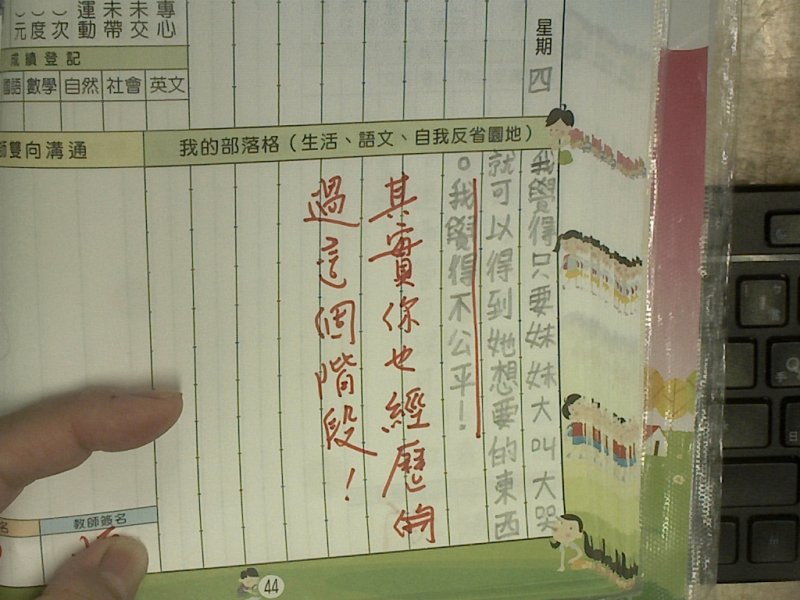 星期四
專心
未交
未帶
運動
）次
）度
）元
成績登記
國語 數學 自然 社會 英文
師雙向溝通
我的部落格（生活、語文、自我反省園地）
我覺得只要妹妹大叫大哭
就可以得到她想要的東西
。我覺得不公平！
其實你也經歷
過這個階段！
名
教師簽名
44